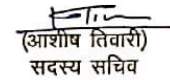 (आशीष तिवारी)
सदस्य सचिव